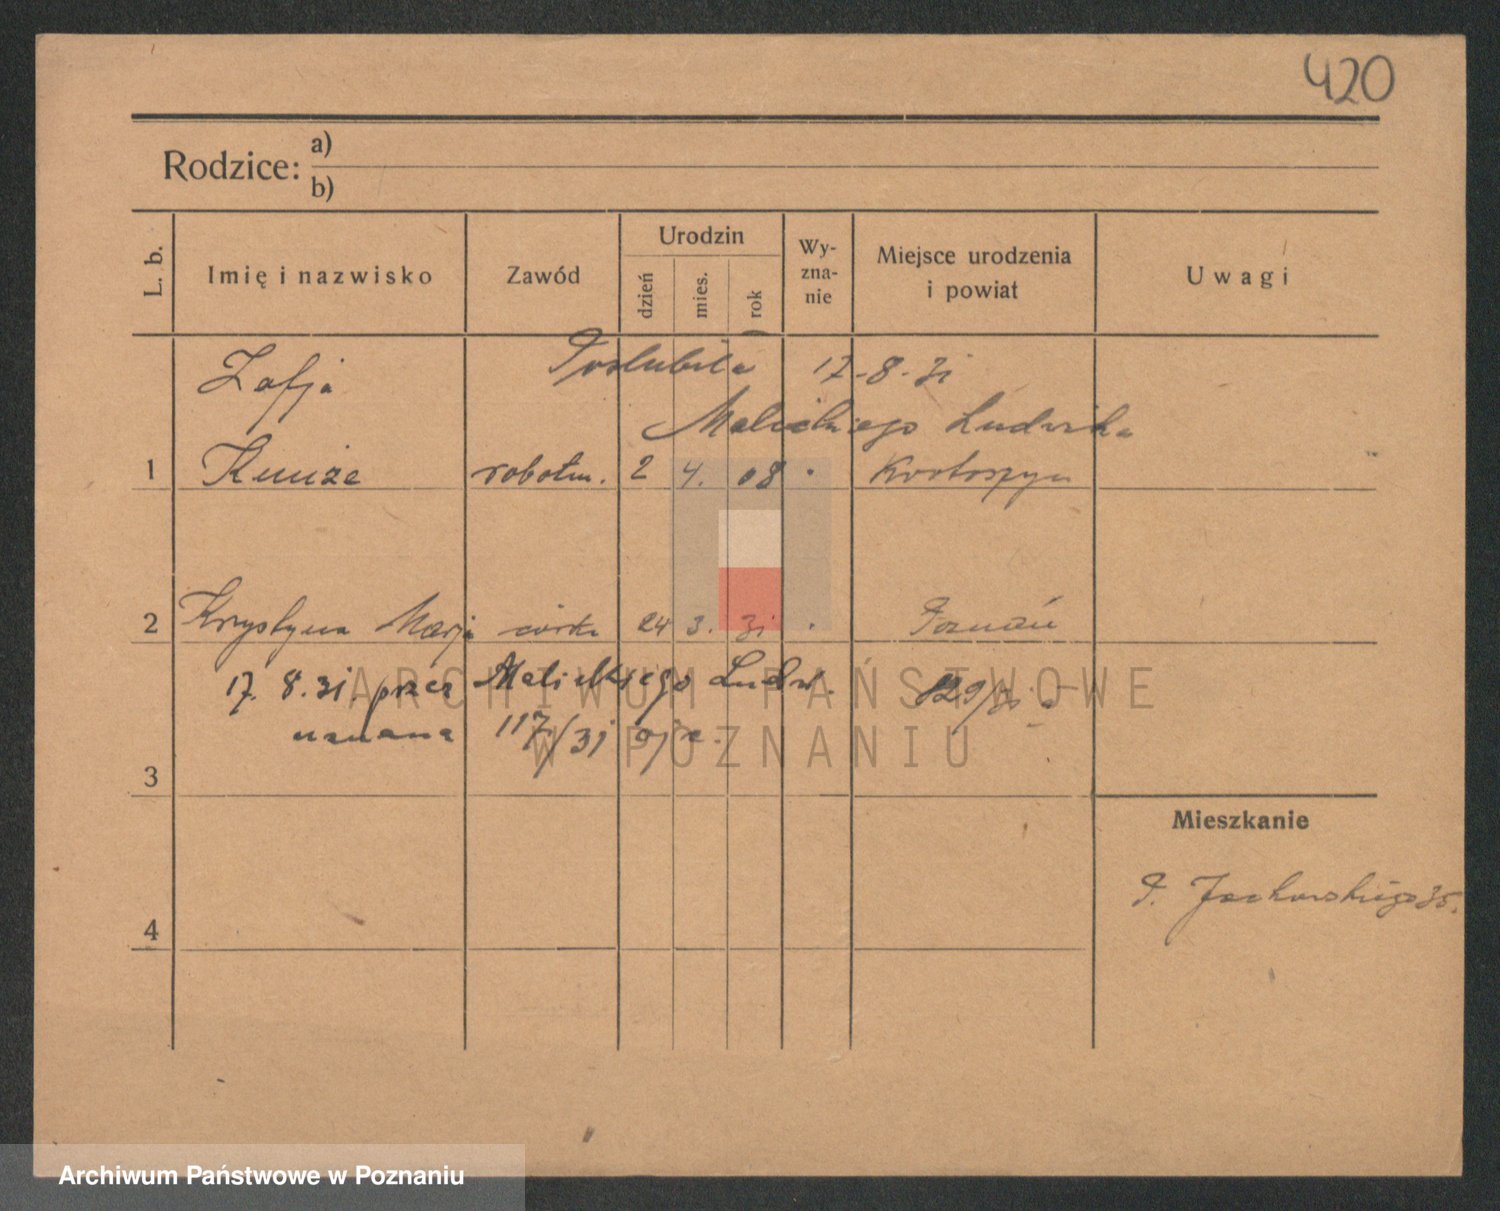 420
Rodzice: a)
b)
L. b. Imię i nazwisko Zawód Urodzin dzień mies. rok Wy-zna-nie Miejsce urodzenia i powiat Uwagi
Zofja Poślubiła 17-8-31
Malickiego Ludwika
1 Kunze robotn. 2 4. 08 Krotoszyn
2 Krystyna Marja córka 24 3. 31 Poznań
17. 8. 31 przez Malickiego Ludw. 829/31
uznana 117/31
3
Mieszkanie
35.
4
ARCHIWUM PAŃSTWOWE
W POZNANIU
Archiwum Państwowe w Poznaniu